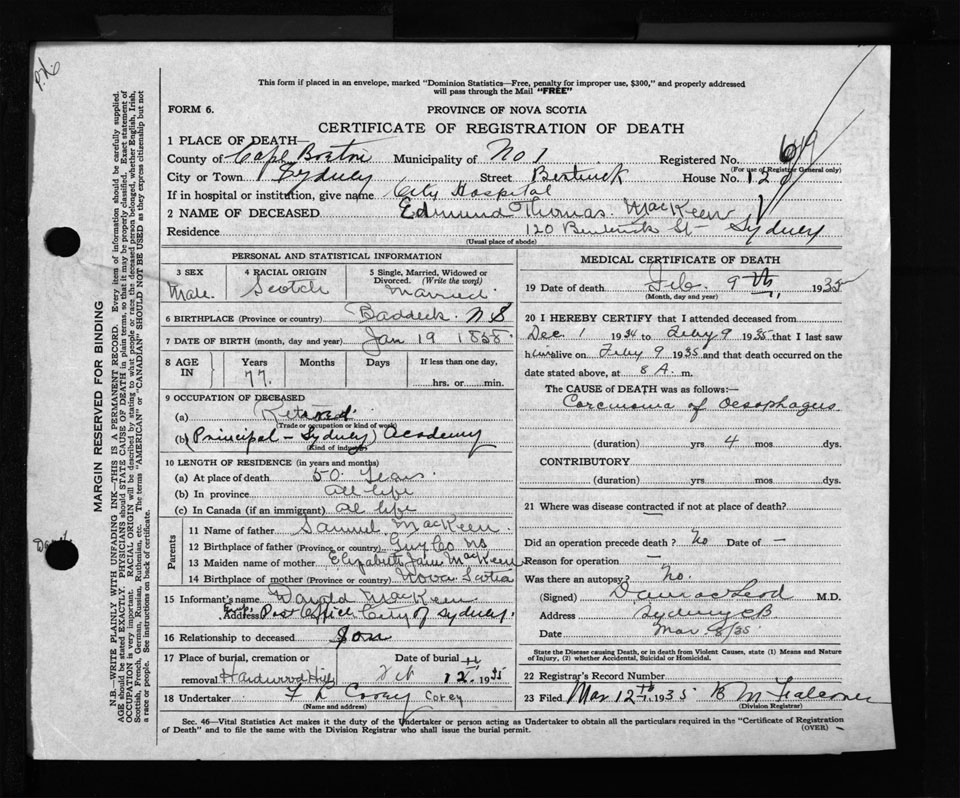 This form if placed in an envelope, marked "Dominion Statistics—Free, penalty for improper use, $300," and properly addressed
will pass through the Mail "FREE"
FORM 6.
PROVINCE OF NOVA SCOTIA
CERTIFICATE OF REGISTRATION OF DEATH
1 PLACE OF DEATH
County of Cape Breton Municipality of No 1 Registered No.
(For use of Registrar General only)
City or Town Sydney Street House No.
If in hospital or institution, give name City Hospital
2 NAME OF DECEASED Edmund Thomas MacKeen
Residence 120 St - Sydney
(Usual place of abode)
PERSONAL AND STATISTICAL INFORMATION
3 SEX Male.
4 RACIAL ORIGIN Scotch
5 Single, Married, Widowed or Divorced. (Write the word) Married
6 BIRTHPLACE (Province or country) Baddeck N S
7 DATE OF BIRTH (month, day and year) Jan 19 1858
8 AGE IN Years 77. Months Days If less than one day, hrs. or min.
9 OCCUPATION OF DECEASED
(a) Retired
(Trade or occupation or kind of work)
(b) (Principal - Sydney) Academy
(Kind of industry)
10 LENGTH OF RESIDENCE (in years and months)
(a) At place of death 50 Years
(b) In province all life
(c) In Canada (if an immigrant) all life
Parents
11 Name of father Samuel MacKeen
12 Birthplace of father (Province or country) Guy Co NS
13 Maiden name of mother Elizabeth Jane MacKeen
14 Birthplace of mother (Province or country) Nova Scotia
15 Informant's name David MacKeen
Address Post Office City of Sydney.
16 Relationship to deceased Son
17 Place of burial, cremation or removal Hardwood Hill Date of burial 12th 1935
18 Undertaker F L Corey Corey
(Name and address)
MEDICAL CERTIFICATE OF DEATH
19 Date of death Feb. 9th, 1935
(Month, day and year)
20 I HEREBY CERTIFY that I attended deceased from
Dec 1 1934 to Feby 9 1935 that I last saw
him alive on Feby 9 1935 and that death occurred on the
date stated above, at 8 A. m.
The CAUSE OF DEATH was as follows:—
Carcinoma of Oesophagus
(duration) yrs 4 mos. dys.
CONTRIBUTORY
(duration) yrs mos. dys.
21 Where was disease contracted if not at place of death?
Did an operation precede death? No Date of —
Reason for operation —
Was there an autopsy? No.
(Signed) M.D.
Address Sydney CB
Date Mar. 8/35
State the Disease causing Death, or in death from Violent Causes, state (1) Means and Nature of Injury, (2) whether Accidental, Suicidal or Homicidal.
22 Registrar's Record Number
23 Filed Mar 12th 1935 B M Falconer
(Division Registrar)
Sec. 46—Vital Statistics Act makes it the duty of the Undertaker or person acting as Undertaker to obtain all the particulars required in the "Certificate of Registration
of Death" and to file the same with the Division Registrar who shall issue the burial permit.
(OVER)
MARGIN RESERVED FOR BINDING
N.B.—WRITE PLAINLY WITH UNFADING INK—THIS IS A PERMANENT RECORD. Every item of information should be carefully supplied.
AGE should be stated EXACTLY. PHYSICIANS should STATE CAUSE OF DEATH in plain terms, so that it may be properly classified. Exact statement of
OCCUPATION is very important. RACIAL ORIGIN will be described by stating to what people or race the deceased person belonged, whether English, Irish,
Scottish, French, German, Russian, Ruthenian, etc. The terms "AMERICAN" or "CANADIAN" SHOULD NOT BE USED as they express citizenship but not
a race or people. See instructions on back of certificate.